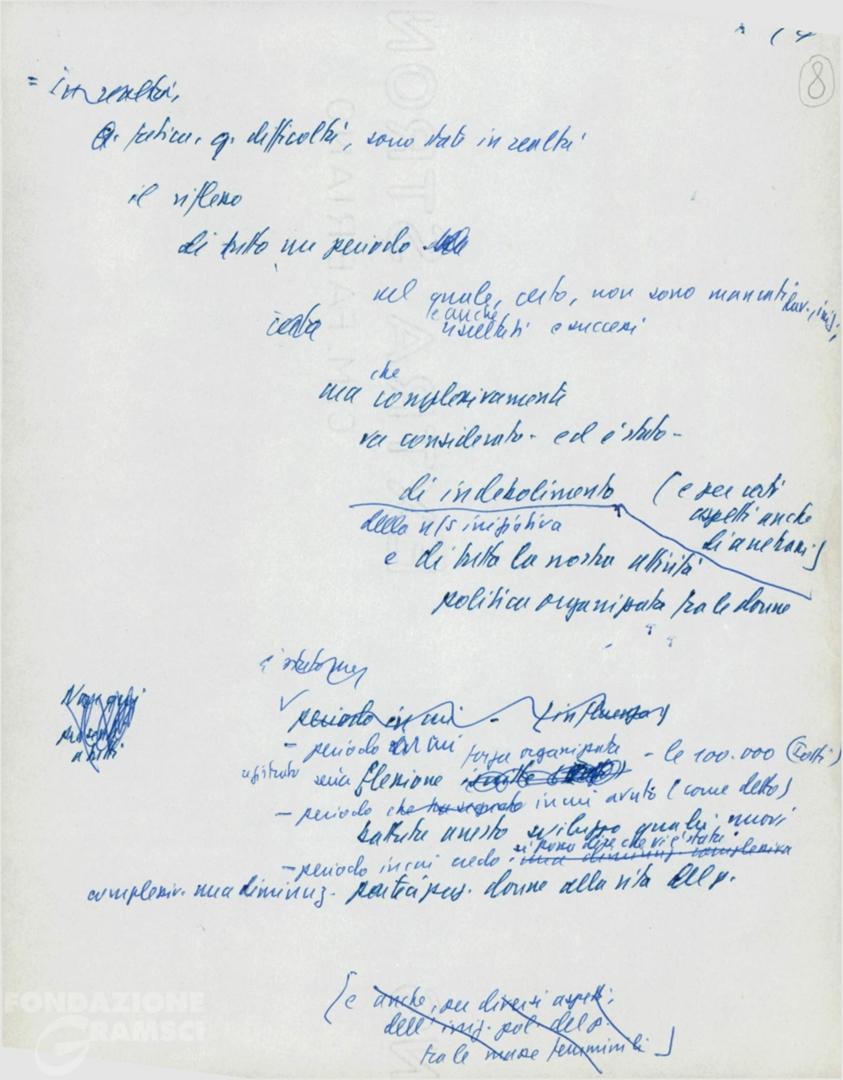 8
= in realtà,
Q. fatica, q. difficoltà, sono state in realtà
il riflesso
di tutto un periodo
nel quale, certo, non sono mancati lav., iniz.,
e anche
risultati e successi
ma che complessivamente
va considerato - ed è stato -
di indebolimento (e per certi
aspetti anche
di arretram.)
della n/s iniziativa
e di tutta la nostra attività
politica organizzata tra le donne
periodo in cui - (influenza)
- periodo in cui forza organizzata - le 100.000 (Tutti)
registrato seria flessione
- periodo che ha segnato in cui avuto (come detto)
battuta arresto sviluppo quadri nuovi
si possa dire che vi è stata
- periodo in cui credo una diminuz. complessiva
compless. una diminuz. partecipaz. donne alla vita del p.
(e anche, per diversi aspetti,
dell'iniz. pol. del p.
tra le masse femminili)
FONDAZIONE
GRAMSCI